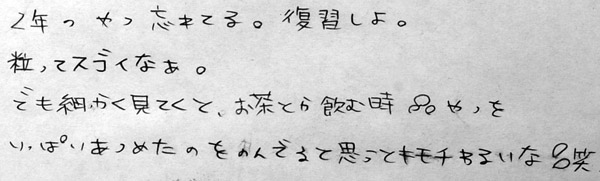 2年のやつ忘れてる。復習しよ。
粒ってスゴイなぁ。
でも細かく見てくと、お茶とか飲む時 やつを
いっぱいあつめたのをのんでるて思ってキモチわるいな 笑